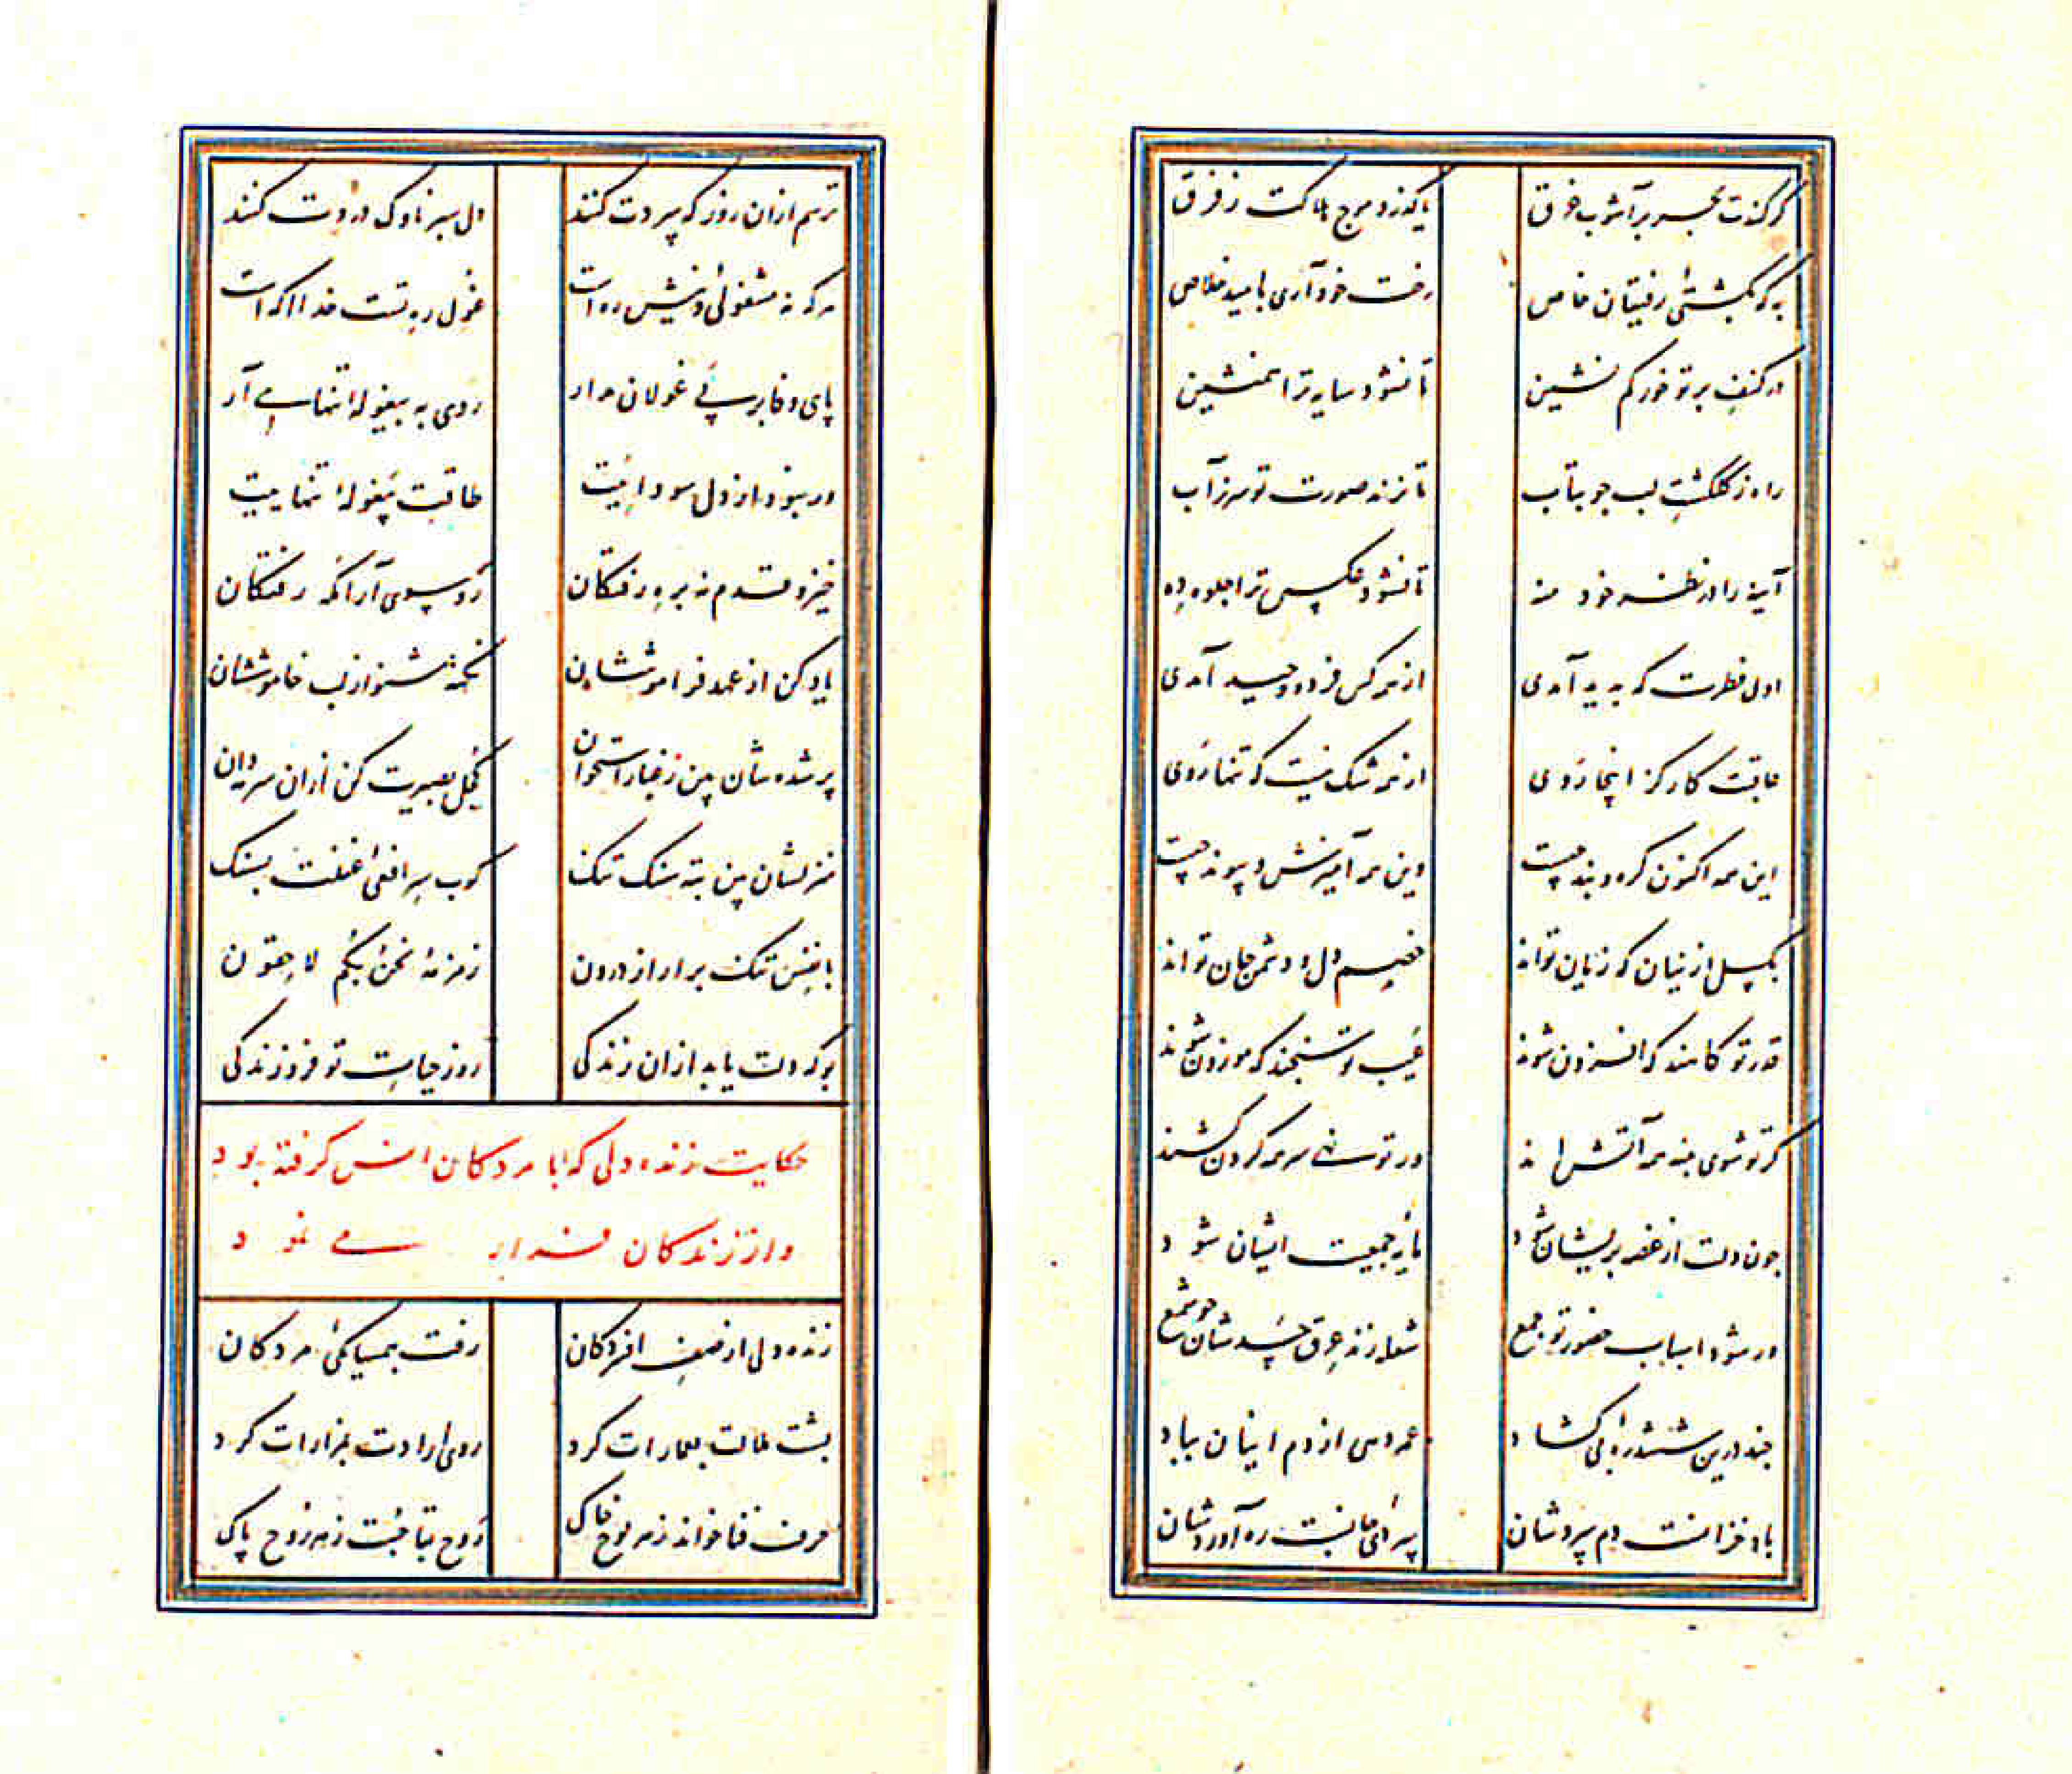 گر کندت بحر پر آشوب غرق یا گذرد موج هلاکت ز فرق
به که بکشتی رفیقان خاص رخت خود آری بامید خلاص
در کنف پرتو خور کم نشین تا نشود سایه ترا همنشین
راه ز گلگشت لب جو بتاب تا نزند صورت تو سر ز آب
آینه را در نظر خود منه تا نشود عکس ترا جلوه ده
اول فطرت که پدید آمدی از همه کس فرد و وحید آمدی
عاقبت کار کز اینجا روی از همه شک نیست که تنها روی
این همه اکنون گره و بند چیست وین همه آمیزش و پیوند چیست
بگسل ازینان که زیان تواند خصم دل و دشمن جان تواند
قدر تو کاهند که افزون شوند عیب تو سنجند که موزون شوند
گر تو شوی پنبه همه آتش اند ور تو نهی سر همه گردن کشند
چون دلت از غصه پریشان شود مایه جمعیت ایشان شود
ور شود اسباب حضور تو جمع شعله زند عرق حسدشان چو شمع
چند درین ششدره بی گشاد عمر دهی از دم اینان بباد
باد خزانست دم سردشان بی رهی عافیت ره آوردشان
ترسم ازان روز که پی بردت کنند دل سپر ناوک دردت کنند
هر که نه مشغولی دینیش ره است غول ره تست خدا آگه است
پای وفا بر پی غولان مدار روی به بیغوله تنهایی آر
ور نبود از دل سوداییت طاقت بیغوله تنهاییت
خیز و قدم نه بره رفتگان رو بسوی آرامگه رفتگان
یاد کن از عهد فراموششان نکته شنو از لب خاموششان
پر شده شان بین ز غبار استخوان کحل بصیرت کن ازان سرمه دان
منزلشان بین بته سنگ تنگ کوب سر افعی غفلت بسنگ
با نفس تنگ برآر از درون زمزمه نحن بکم لاحقون
بو که دلت یابد ازان زندگی روز حیات تو فروزندگی
حکایت زنده دلی که با مردگان انس گرفته بود
و از زندگان فرار می نمود
زنده دلی از صف افسردگان رفت بهمسایگی مردگان
پشت ملالت بعمارات کرد روی ارادت بمزارات کرد
حرف فنا خواند ز هر لوح خاک روح بقا جست ز هر روح پاک